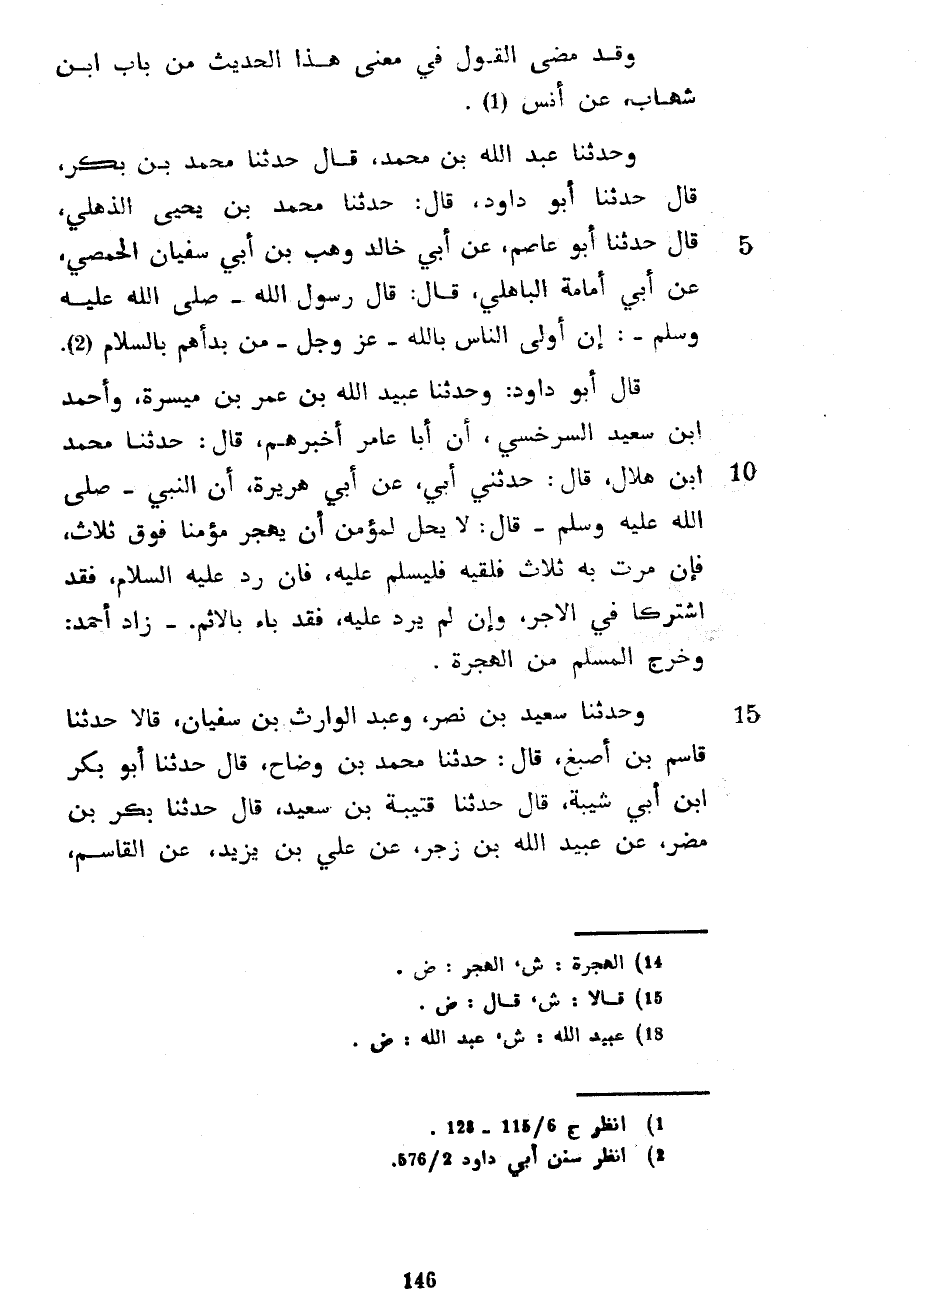 وقـد مضى القـول في معنى هـذا الحديث من باب ابـن
شهـاب، عن أنس (1) .
وحدثنا عبد الله بن محمد، قـال حدثنا محمد بـن بـكـر،
قال حدثنا أبو داود، قال: حدثنا محمد بن يحيى الذهلي،
5 قال حدثنا أبو عاصم، عن أبي خالد وهب بن أبي سفيان الحمصي،
عن أبي أمامة الباهلي، قـال: قال رسول الله ـ صلى الله عليـه
وسلم ـ : إن أولى الناس بالله ـ عز وجل ـ من بدأهم بالسلام (2).
قال أبو داود: وحدثنا عبيد الله بن عمر بن ميسرة، وأحمد
ابن سعيد السرخسي، أن أبا عامر أخبرهـم، قال : حدثنـا محمد
10 ابن هلال، قال : حدثني أبي، عن أبي هريرة، أن النبي ـ صلى
الله عليه وسلم ـ قال: لا يحل لمؤمن أن يهجر مؤمنا فوق ثلاث،
فإن مرت به ثلاث فلقيه فليسلم عليه، فان رد عليه السلام، فقد
اشتركا في الاجر، وإن لم يرد عليه، فقد باء بالاثم. ـ زاد أحمد:
وخرج المسلم من الهجرة .
15 وحدثنا سعيد بن نصر، وعبد الوارث بن سفيان، قالا حدثنا
قاسم بن أصبغ، قال : حدثنا محمد بن وضاح، قال حدثنا أبو بكر
ابن أبي شيبة، قال حدثنا قتيبة بن سعيد، قال حدثنا بكر بن
مضر، عن عبيد الله بن زجر، عن علي بن يزيد، عن القاسـم،
14) الهجرة : ش، الهجر : ض .
15) قـالا : ش، قـال : ض .
18) عبيد الله : ش، عبد الله : ض .
1) انظر ج 115/6 ـ 128 .
2) انظر سنن أبي داود 576/2.
146